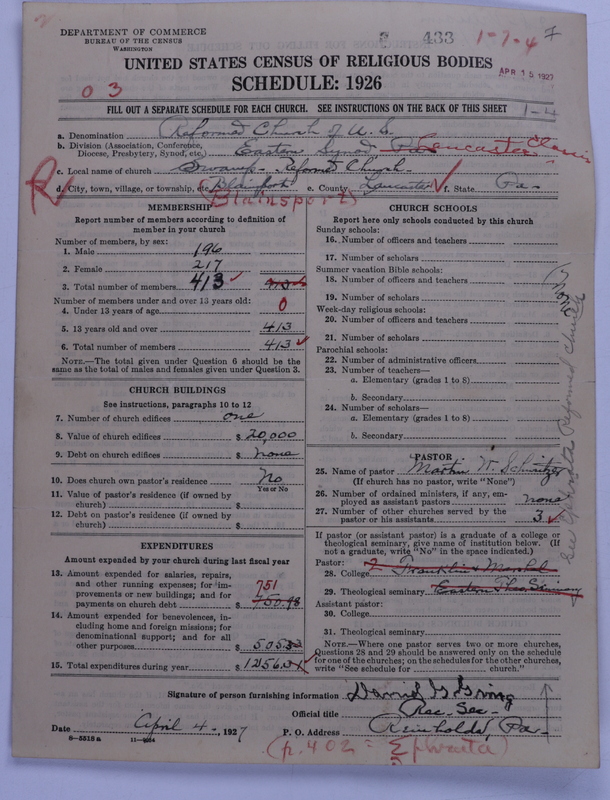 DEPARTMENT OF COMMERCE
BUREAU OF THE CENSUS
WASHINGTON
433 1-7-4 7
UNITED STATES CENSUS OF RELIGIOUS BODIES
APR 15 1927
SCHEDULE: 1926
03
FILL OUT A SEPARATE SCHEDULE FOR EACH CHURCH. SEE INSTRUCTIONS ON THE BACK OF THIS SHEET
1-4
a. Denomination Reformed Church of U.S.
b. Division (Association, Conference, Diocese, Presbytery, Synod, etc.) Eastern Synod Pa. Lancaster Classis
c. Local name of church Swamp Reformed Church
d. City, town, village, or township, etc. e. County Lancaster f. State Pa-
R Blainsport
MEMBERSHIP
Report number of members according to definition of member in your church
Number of members, by sex:
1. Male 196
2. Female 217
3. Total number of members 413 413
Number of members under and over 13 years old:
4. Under 13 years of age 0
5. 13 years old and over 413
6. Total number of members 413
NOTE.—The total given under Question 6 should be the same as the total of males and females given under Question 3.
CHURCH BUILDINGS
See instructions, paragraphs 10 to 12
7. Number of church edifices one
8. Value of church edifices $ 20,000
9. Debt on church edifices $ none
10. Does church own pastor's residence? No
Yes or No
11. Value of pastor's residence (if owned by church) $
12. Debt on pastor's residence (if owned by church) $
EXPENDITURES
Amount expended by your church during last fiscal year
13. Amount expended for salaries, repairs, and other running expenses; for improvements or new buildings; and for payments on church debt $ 751 750.98
14. Amount expended for benevolences, including home and foreign missions; for denominational support; and for all other purposes $ 505
15. Total expenditures during year $ 1256
CHURCH SCHOOLS
Report here only schools conducted by this church
Sunday schools:
16. Number of officers and teachers
17. Number of scholars
Summer vacation Bible schools:
18. Number of officers and teachers
19. Number of scholars
Week-day religious schools:
20. Number of officers and teachers
21. Number of scholars
Parochial schools:
22. Number of administrative officers
23. Number of teachers—
a. Elementary (grades 1 to 8)
b. Secondary
24. Number of scholars—
a. Elementary (grades 1 to 8)
b. Secondary
(None
See Ephrata Reformed Church
PASTOR
25. Name of pastor Martin W. Schweitzer
(If church has no pastor, write "None")
26. Number of ordained ministers, if any, employed as assistant pastors none
27. Number of other churches served by the pastor or his assistants 3
If pastor (or assistant pastor) is a graduate of a college or theological seminary, give name of institution below. (If not a graduate, write "No" in the space indicated.)
Pastor:
28. College Franklin & Marshal
29. Theological seminary Eastern Theo. Seminary
Assistant pastor:
30. College
31. Theological seminary
NOTE.—Where one pastor serves two or more churches, Questions 28 and 29 should be answered only on the schedule for one of the churches; on the schedules for the other churches, write "See schedule for church."
Signature of person furnishing information
Official title Rec. Sec.
Date April 4, 1927 P. O. Address Reinholds, Pa.
8-5518a 11-9264
(p. 402 = Ephrata)